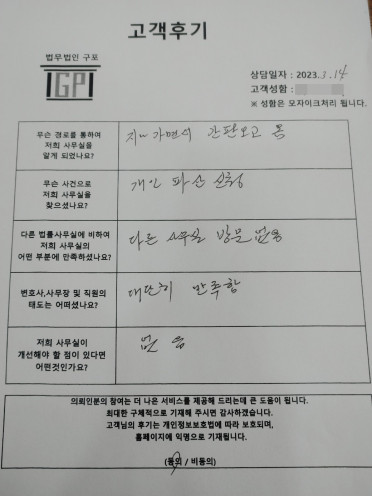 고객후기
법무법인 구포
GP
상담일자 : 2023.3.14
고객성함 :
※ 성함은 모자이크처리 됩니다.
무슨 경로를 통하여
저희 사무실을
알게 되었나요?
지나가면서 간판보고 옴
무슨 사건으로
저희 사무실을
찾으셨나요?
개인 파산 신청
다른 법률사무실에 비하여
저희 사무실의
어떤 부분에 만족하셨나요?
다른 사무실 방문 없음
변호사,사무장 및 직원의
태도는 어떠셨나요?
대단히 만족함
저희 사무실이
개선해야 할 점이 있다면
어떤것인가요?
없음
의뢰인분의 참여는 더 나은 서비스를 제공해 드리는데 큰 도움이 됩니다.
최대한 구체적으로 기재해 주시면 감사하겠습니다.
고객님의 후기는 개인정보보호법에 따라 보호되며,
홈페이지에 익명으로 기재됩니다.
(동의 / 비동의)